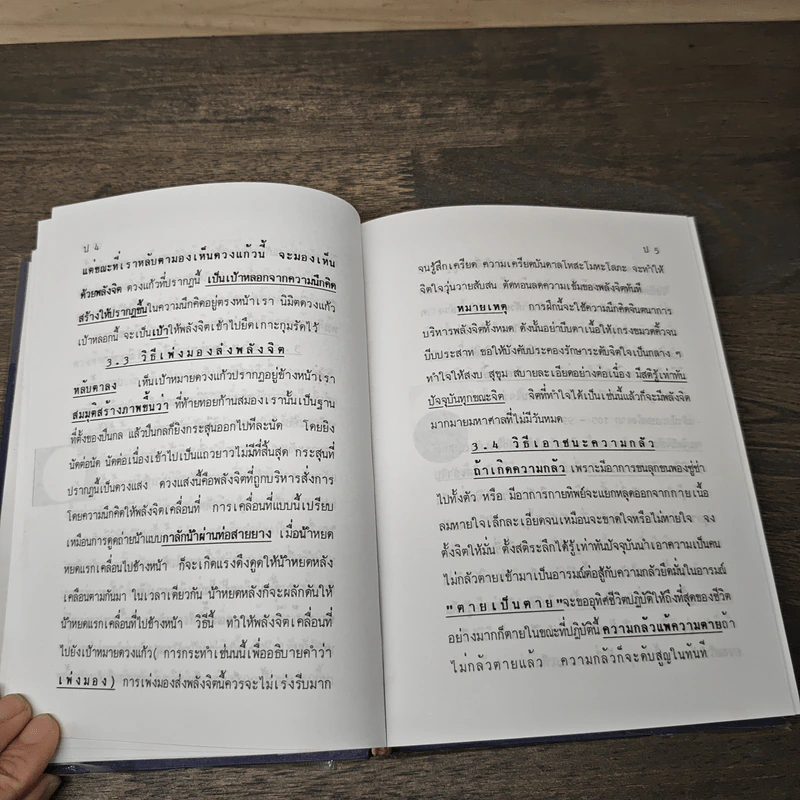 ป 4
แต่ขณะที่เราหลับตามองเห็นดวงแก้วนี้ จะมองเห็น
ด้วยพลังจิต ดวงแก้วที่ปรากฏนี้ เป็นเป้าหลอกจากความนึกคิด
สร้างให้ปรากฏขึ้นในความนึกคิดอยู่ตรงหน้าเรา นิมิตดวงแก้ว
เป้าหลอกนี้ จะเป็นเป้าให้พลังจิตเข้าไปยึดเกาะกุมรัดไว้
3.3 วิธีเพ่งมองส่งพลังจิต
หลับตาลง เห็นเป้าหมายดวงแก้วปรากฏอยู่ข้างหน้าเรา
สมมุติสร้างภาพขึ้นว่า ที่ท้ายทอยก้านสมองเรานั้นเป็นฐาน
ที่ตั้งของปืนกล แล้วปืนกลก็ยิงกระสุนออกไปทีละนัด โดยยิง
นัดต่อนัด นัดต่อเนื่องเข้าไปเป็นแถวยาวไม่มีที่สิ้นสุด กระสุนที่
ปรากฏนี้เป็นดวงแสง ดวงแสงนี้คือพลังจิตที่ถูกบริหารสั่งการ
โดยความนึกคิดให้พลังจิตเคลื่อนที่ การเคลื่อนที่แบบนี้เปรียบ
เหมือนการดูดถ่ายน้ำแบบกาลักน้ำผ่านท่อสายยาง เมื่อน้ำหยด
หยดแรกเคลื่อนไปข้างหน้า ก็จะเกิดแรงดึงดูดให้น้ำหยดหลัง
เคลื่อนตามกันมา ในเวลาเดียวกัน น้ำหยดหลังก็จะผลักดันให้
น้ำหยดแรกเคลื่อนที่ไปข้างหน้า วิธีนี้ ทำให้พลังจิตเคลื่อนที่
ไปยังเป้าหมายดวงแก้ว( การกระทำเช่นนี้เพื่ออธิบายคำว่า
เพ่งมอง) การเพ่งมองส่งพลังจิตนี้ควรจะไม่เร่งรีบมาก
ป 5
จนรู้สึกเครียด ความเครียดบันดาลโทสะโมหะโลภะ จะทำให้
จิตใจวุ่นวายสับสน ตัดทอนลดความเข้มของพลังจิตทันที
หมายเหตุ การฝึกนี้จะใช้ความนึกคิดจินตนาการ
บริหารพลังจิตทั้งหมด ดังนั้นอย่าบีบตาเนื้อให้เกร็งขมวดคิ้วจน
บีบประสาท ขอให้บังคับประคองรักษาระดับจิตใจเป็นกลาง ๆ
ทำใจให้สงบ สุขุม สบายละเอียดอย่างต่อเนื่อง มีสติรู้เท่าทัน
ปัจจุบันทุกขณะจิต จิตที่ทำใจได้เป็นเช่นนี้แล้วก็จะมีพลังจิต
มากมายมหาศาลที่ไม่มีวันหมด
3.4 วิธีเอาชนะความกลัว
ถ้าเกิดความกลัว เพราะมีอาการขนลุกขนพองซู่ซ่า
ไปทั้งตัว หรือ มีอาการกายทิพย์จะแยกหลุดออกจากกายเนื้อ
ลมหายใจเล็กละเอียดจนเหมือนจะขาดใจหรือไม่หายใจ จง
ตั้งจิตให้มั่น ตั้งสติระลึกได้รู้เท่าทันปัจจุบันนำเอาความเป็นคน
ไม่กลัวตายเข้ามาเป็นอารมณ์ต่อสู้กับความกลัวยึดมั่นในอารมณ์
"ตายเป็นตาย"จะขออุทิศชีวิตปฏิบัติให้ถึงที่สุดของชีวิต
อย่างมากก็ตายในขณะที่ปฏิบัตินี้ ความกลัวแพ้ความตายถ้า
ไม่กลัวตายแล้ว ความกลัวก็จะดับสูญในทันที